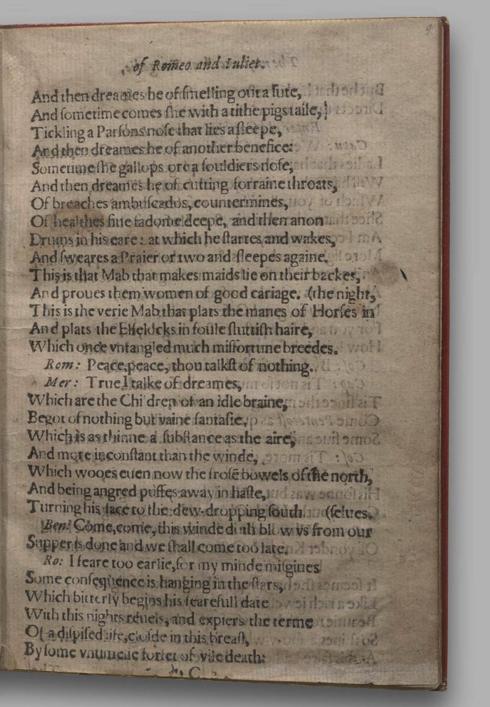 of Romeo and Iuliet.
And then dreames he of smelling out a sute,
And sometime comes she with a tithe pigs taile,
Tickling a Parsons nose that lies asleepe,
And then dreames he of another benefice:
Sometime she gallops ore a souldiers nose,
And then dreames he of cutting forraine throats,
Of breaches ambuscados, countermines,
Of healthes fiue fadome deepe, and then anon
Drums in his eare: at which he startes and wakes,
And sweares a Praier or two and sleepes againe.
This is that Mab that makes maids lie on their backes,
And proues them women of good cariage. (the night,
This is the verie Mab that plats the manes of Horses in
And plats the Elfelocks in foule sluttish haire,
Which once vntangled much misfortune breedes.
Rom: Peace, peace, thou talkst of nothing.
Mer: True I talke of dreames,
Which are the Chi dren of an idle braine,
Begot of nothing but vaine fantasie,
Which is as thinne a substance as the aire,
And more inconstant than the winde,
Which wooes euen now the frose bowels of the north,
And being angred puffes away in haste,
Turning his face to the dew-dropping south. (selues.
Ben: Come, come, this winde doth blow vs from our
Supper is done and we shall come too late.
Ro: I feare too earlie, for my minde misgiues
Some consequence is hanging in the stars,
Which bitterly begins his fearefull date
With this nights reuels, and expiers the terme
Of a dispised life, closde in this breast,
By some vntimelie forfet of vile death:
C